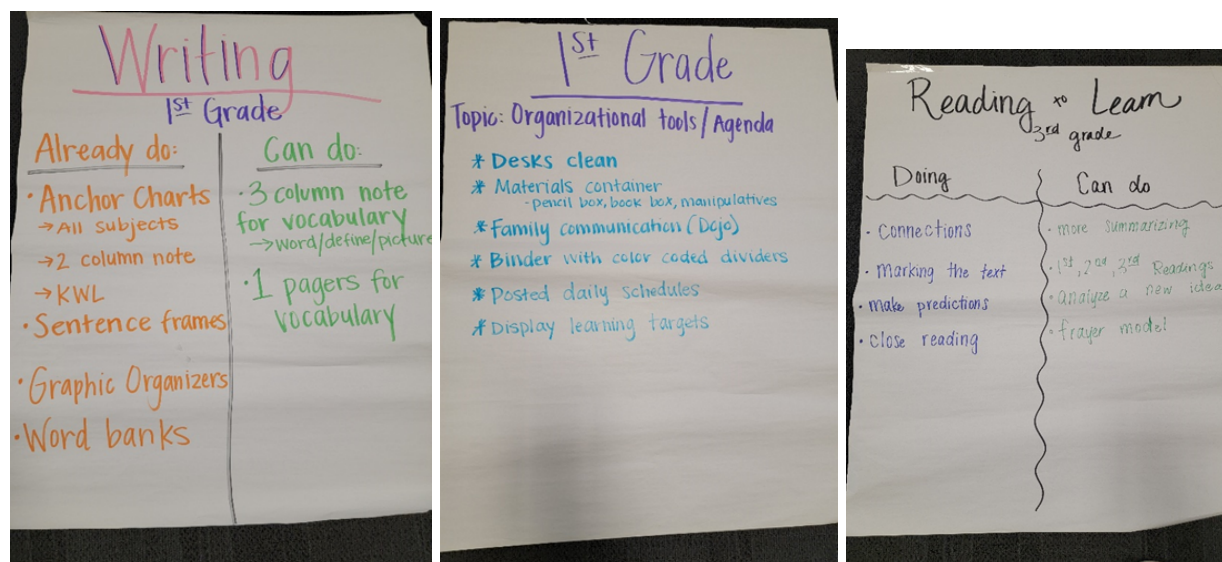 Writing
1st Grade
Already do:
· Anchor Charts
→ All subjects
→ 2 column note
→ KWL
· Sentence frames
· Graphic Organizers
· Word banks
Can do:
· 3 column note
for vocabulary
→ word/define/picture
· 1 pagers for
vocabulary
1st Grade
Topic: Organizational tools/Agenda
* Desks clean
* Materials container
- pencil box, book box, manipulatives
* Family communication (Dojo)
* Binder with color coded dividers
* Posted daily schedules
* Display learning targets
Reading to Learn
3rd grade
Doing
· Connections
· marking the text
· make predictions
· close reading
Can do
· more summarizing
· 1st, 2nd, 3rd Readings
· analyze a new idea
· frayer model